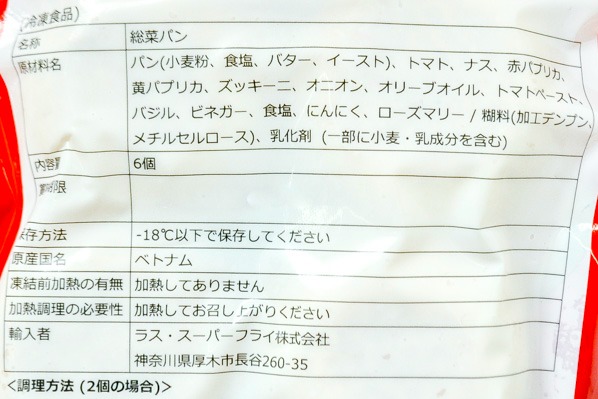 (冷凍食品)
名称 総菜パン
原材料名 パン(小麦粉、食塩、バター、イースト)、トマト、ナス、赤パプリカ、
黄パプリカ、ズッキーニ、オニオン、オリーブオイル、トマトペースト、
バジル、ビネガー、食塩、にんにく、ローズマリー / 糊料(加工デンプン、
メチルセルロース)、乳化剤 (一部に小麦・乳成分を含む)
内容量 6個
期限
保存方法 -18℃以下で保存してください
原産国名 ベトナム
凍結前加熱の有無 加熱してありません
加熱調理の必要性 加熱してお召し上がりください
輸入者 ラス・スーパーフライ株式会社
神奈川県厚木市長谷260-35
<調理方法 (2個の場合)>